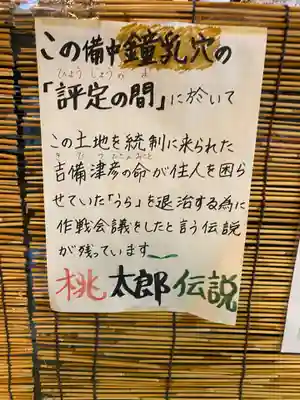 この備中鐘乳穴の
ひょうじょうのま
「評定の間」に於いて
この土地を統制に来られた
きびつひこのみこと
吉備津彦の命が住人を困ら
せていた「うら」を退治する為に
作戦会議をしたと言う伝説
が残っています
桃太郎伝説